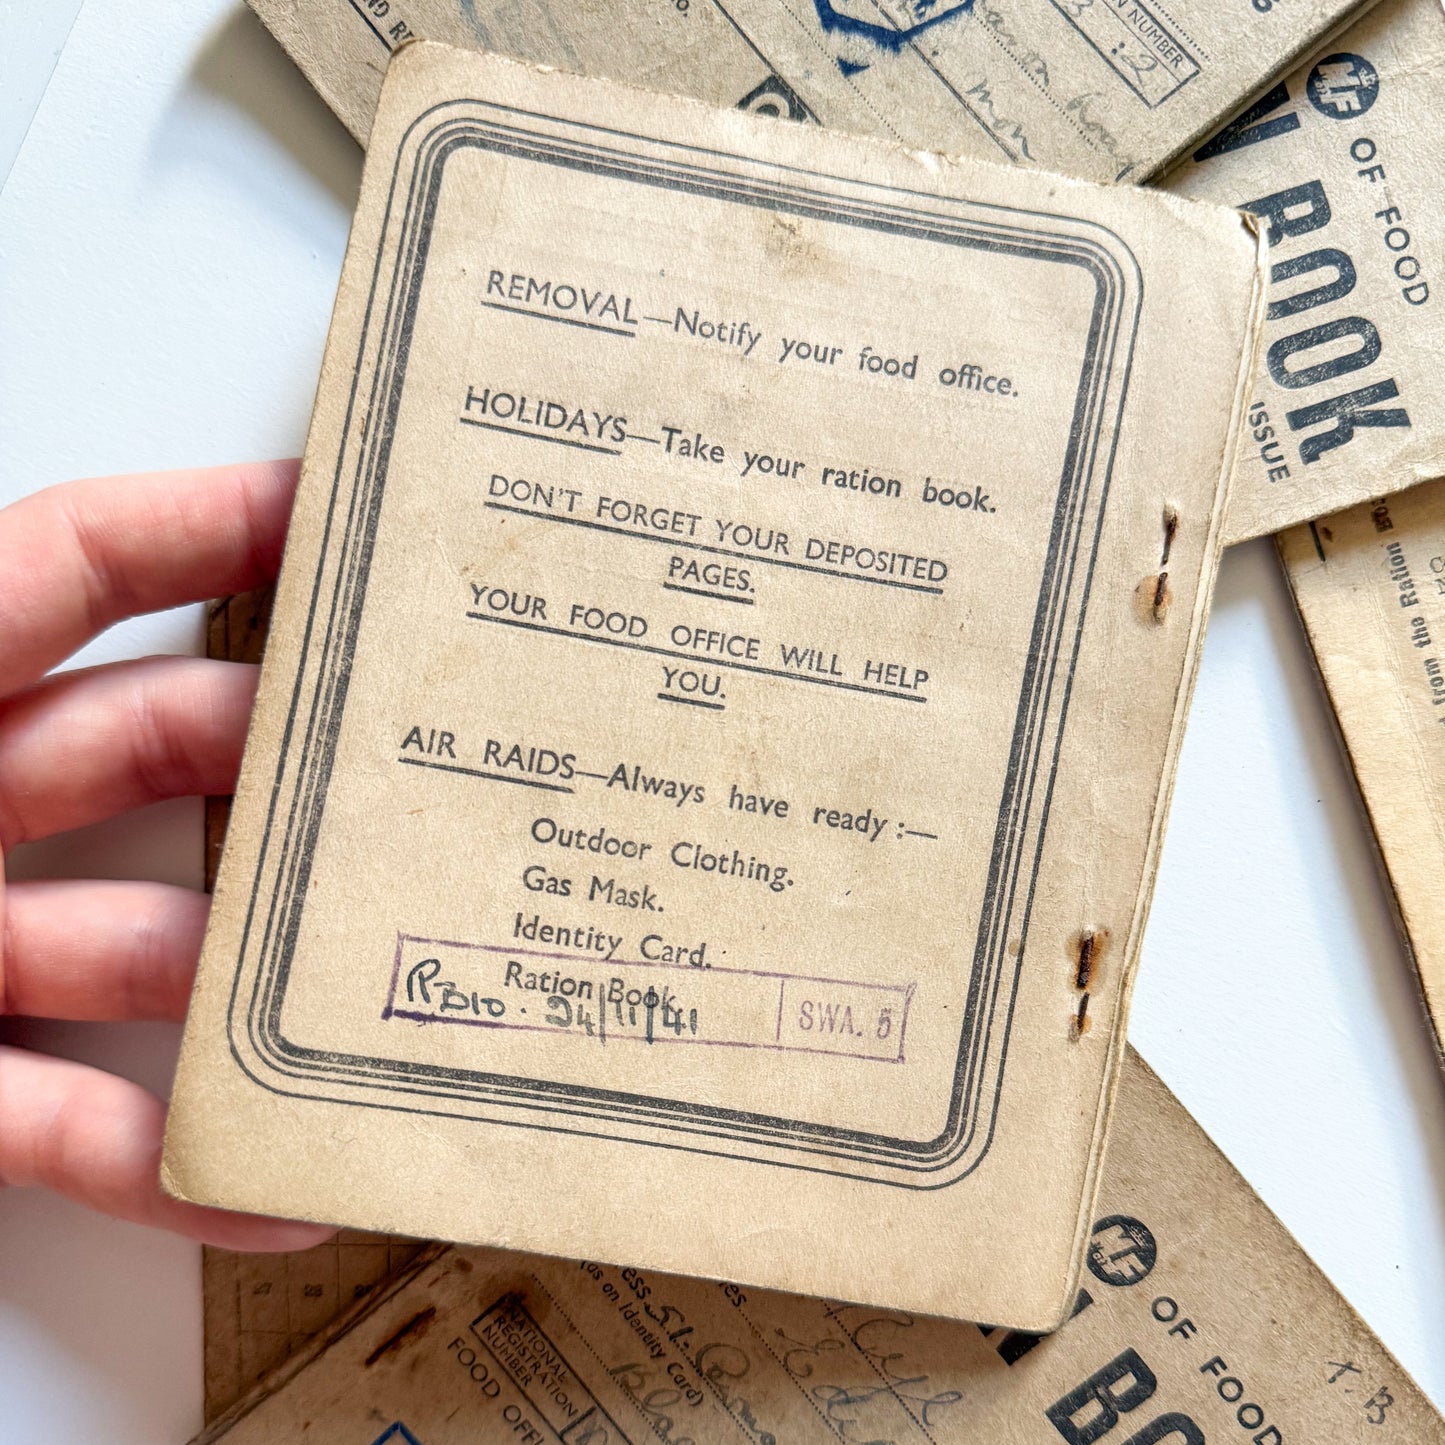 REMOVAL—Notify your food office.
HOLIDAYS—Take your ration book.
DON'T FORGET YOUR DEPOSITED
PAGES.
YOUR FOOD OFFICE WILL HELP
YOU.
AIR RAIDS—Always have ready:—
Outdoor Clothing.
Gas Mask.
Identity Card.
Ration Book
24/11/41
SWA. 5
NUMBER
:2
OF FOOD
BOOK
ISSUE
from the Ration
27 28
(as on Identity Card)
NATIONAL
REGISTRATION
NUMBER
FOOD
OF FOOD
T.B